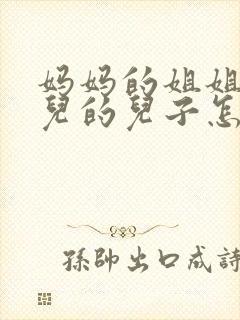 妈妈的姐姐
兒的兒子怎
孫帥出口成詩